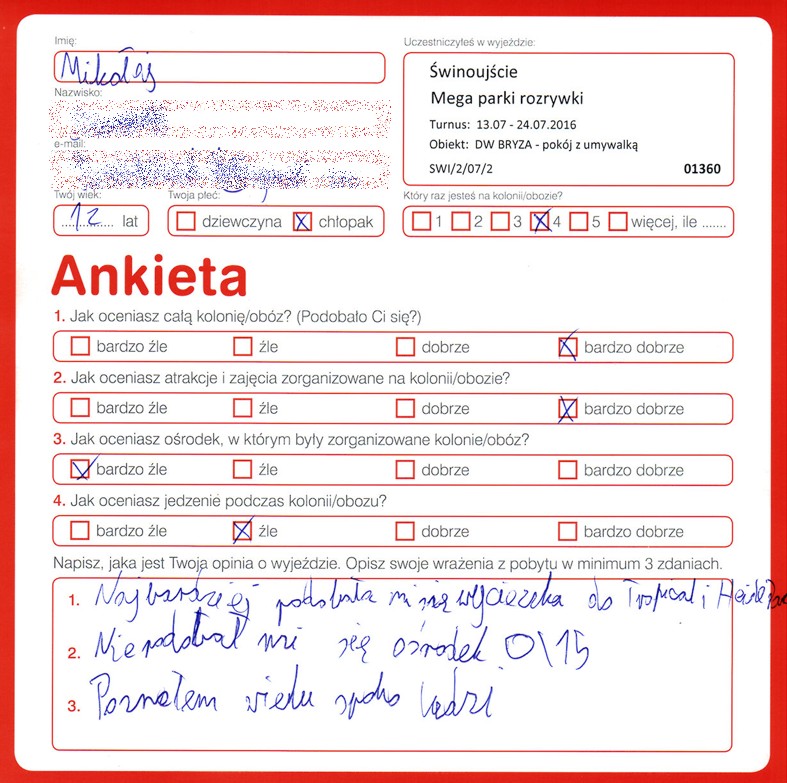 Imię:
Mikołaj
Nazwisko:
e-mail:
Twój wiek:
12 lat
Twoja płeć:
dziewczyna chłopak
Uczestniczyłeś w wyjeździe:
Świnoujście
Mega parki rozrywki
Turnus: 13.07 - 24.07.2016
Obiekt: DW BRYZA - pokój z umywalką
SWI/2/07/2 01360
Który raz jesteś na kolonii/obozie?
1 2 3 4 5 więcej, ile .......
Ankieta
1. Jak oceniasz całą kolonię/obóz? (Podobało Ci się?)
bardzo źle źle dobrze bardzo dobrze
2. Jak oceniasz atrakcje i zajęcia zorganizowane na kolonii/obozie?
bardzo źle źle dobrze bardzo dobrze
3. Jak oceniasz ośrodek, w którym były zorganizowane kolonie/obóz?
bardzo źle źle dobrze bardzo dobrze
4. Jak oceniasz jedzenie podczas kolonii/obozu?
bardzo źle źle dobrze bardzo dobrze
Napisz, jaka jest Twoja opinia o wyjeździe. Opisz swoje wrażenia z pobytu w minimum 3 zdaniach.
1. Najbardziej podobała mi się wycieczka do Tropical i Heide
2. Nie podobał mi się ośrodek 0\15
3. Poznałem wielu spoko ludzi